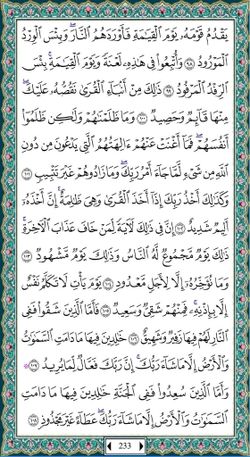 يَقْدُمُ قَوْمَهُۥ يَوْمَ ٱلْقِيَٰمَةِ فَأَوْرَدَهُمُ ٱلنَّارَ ۖ وَبِئْسَ ٱلْوِرْدُ
ٱلْمَوْرُودُ ٩٨ وَأُتْبِعُوا۟ فِى هَٰذِهِۦ لَعْنَةً وَيَوْمَ ٱلْقِيَٰمَةِ ۚ بِئْسَ
ٱلرِّفْدُ ٱلْمَرْفُودُ ٩٩ ذَٰلِكَ مِنْ أَنۢبَآءِ ٱلْقُرَىٰ نَقُصُّهُۥ عَلَيْكَ ۖ
مِنْهَا قَآئِمٌ وَحَصِيدٌ ١٠٠ وَمَا ظَلَمْنَٰهُمْ وَلَٰكِن ظَلَمُوٓا۟
أَنفُسَهُمْ ۖ فَمَآ أَغْنَتْ عَنْهُمْ ءَالِهَتُهُمُ ٱلَّتِى يَدْعُونَ مِن دُونِ
ٱللَّهِ مِن شَىْءٍ لَّمَّا جَآءَ أَمْرُ رَبِّكَ ۖ وَمَا زَادُوهُمْ غَيْرَ تَتْبِيبٍ ١٠١
وَكَذَٰلِكَ أَخْذُ رَبِّكَ إِذَآ أَخَذَ ٱلْقُرَىٰ وَهِىَ ظَٰلِمَةٌ ۚ إِنَّ أَخْذَهُۥٓ
أَلِيمٌ شَدِيدٌ ١٠٢ إِنَّ فِى ذَٰلِكَ لَءَايَةً لِّمَنْ خَافَ عَذَابَ ٱلْءَاخِرَةِ ۚ
ذَٰلِكَ يَوْمٌ مَّجْمُوعٌ لَّهُ ٱلنَّاسُ وَذَٰلِكَ يَوْمٌ مَّشْهُودٌ ١٠٣
وَمَا نُؤَخِّرُهُۥٓ إِلَّا لِأَجَلٍ مَّعْدُودٍ ١٠٤ يَوْمَ يَأْتِ لَا تَكَلَّمُ نَفْسٌ
إِلَّا بِإِذْنِهِۦ ۚ فَمِنْهُمْ شَقِىٌّ وَسَعِيدٌ ١٠٥ فَأَمَّا ٱلَّذِينَ شَقُوا۟ فَفِى
ٱلنَّارِ لَهُمْ فِيهَا زَفِيرٌ وَشَهِيقٌ ١٠٦ خَٰلِدِينَ فِيهَا مَا دَامَتِ ٱلسَّمَٰوَٰتُ
وَٱلْأَرْضُ إِلَّا مَا شَآءَ رَبُّكَ ۚ إِنَّ رَبَّكَ فَعَّالٌ لِّمَا يُرِيدُ ١٠٧
وَأَمَّا ٱلَّذِينَ سُعِدُوا۟ فَفِى ٱلْجَنَّةِ خَٰلِدِينَ فِيهَا مَا دَامَتِ
ٱلسَّمَٰوَٰتُ وَٱلْأَرْضُ إِلَّا مَا شَآءَ رَبُّكَ ۖ عَطَآءً غَيْرَ مَجْذُوذٍ ١٠٨
233